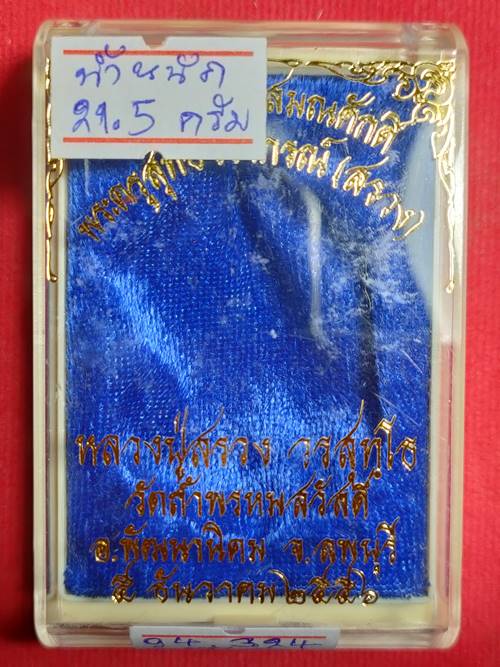 น้ำหนัก
21.5 กรัม
สมณศักดิ์
(สรวง)
หลวงปู่สรวง วรสุทฺโธ
วัดถ้ำพรหมสวัสดิ์
อ.พัฒนานิคม จ.ลพบุรี
๕ ธันวาคม ๒๕๕๖